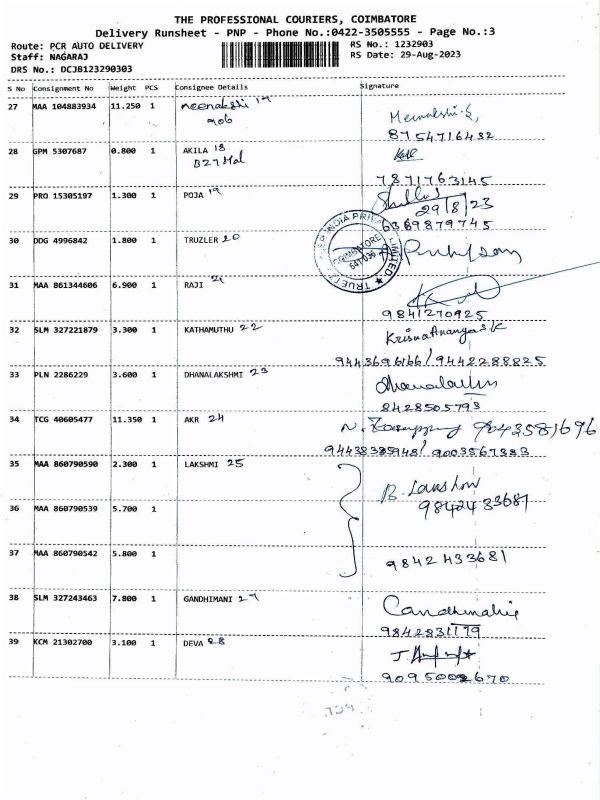 THE PROFESSIONAL COURIERS, COIMBATORE
Delivery Runsheet - PNP - Phone No.:0422-3505555 - Page No.:3
Route: PCR AUTO DELIVERY
RS No.: 1232903
Staff: NAGARAJ
RS Date: 29-Aug-2023
DRS No.: DCJB123290303
S No Consignment No Weight PCS Consignee Details Signature
27 MAA 104883934 11.250 1 meenakshi 17
Meenakshi.S,
8754716432
28 GPM 5307687 0.800 1 AKILA 18
B27 Mal
7871763145
29 PRO 15305197 1.300 1 POJA 19
29/8/23
6369879745
30 DDG 4996842 1.800 1 TRUZLER 20
COIMBATORE
641 036
31 MAA 861344606 6.900 1 RAJI 21
9841270925
32 SLM 327221879 3.300 1 KATHAMUTHU 22
9443696166/9442288825
33 PLN 2286229 3.600 1 DHANALAKSHMI 23
Dhanalakshmi
8428505793
34 TCG 40605477 11.350 1 AKR 24
9843581696
9003567883
35 MAA 860790590 2.300 1 LAKSHMI 25
36 MAA 860790539 5.700 1
9842433681
37 MAA 860790542 5.800 1
9842433681
38 SLM 327243463 7.800 1 GANDHIMANI 27
9842831179
39 KCM 21302700 3.100 1 DEVA 28
9095002670